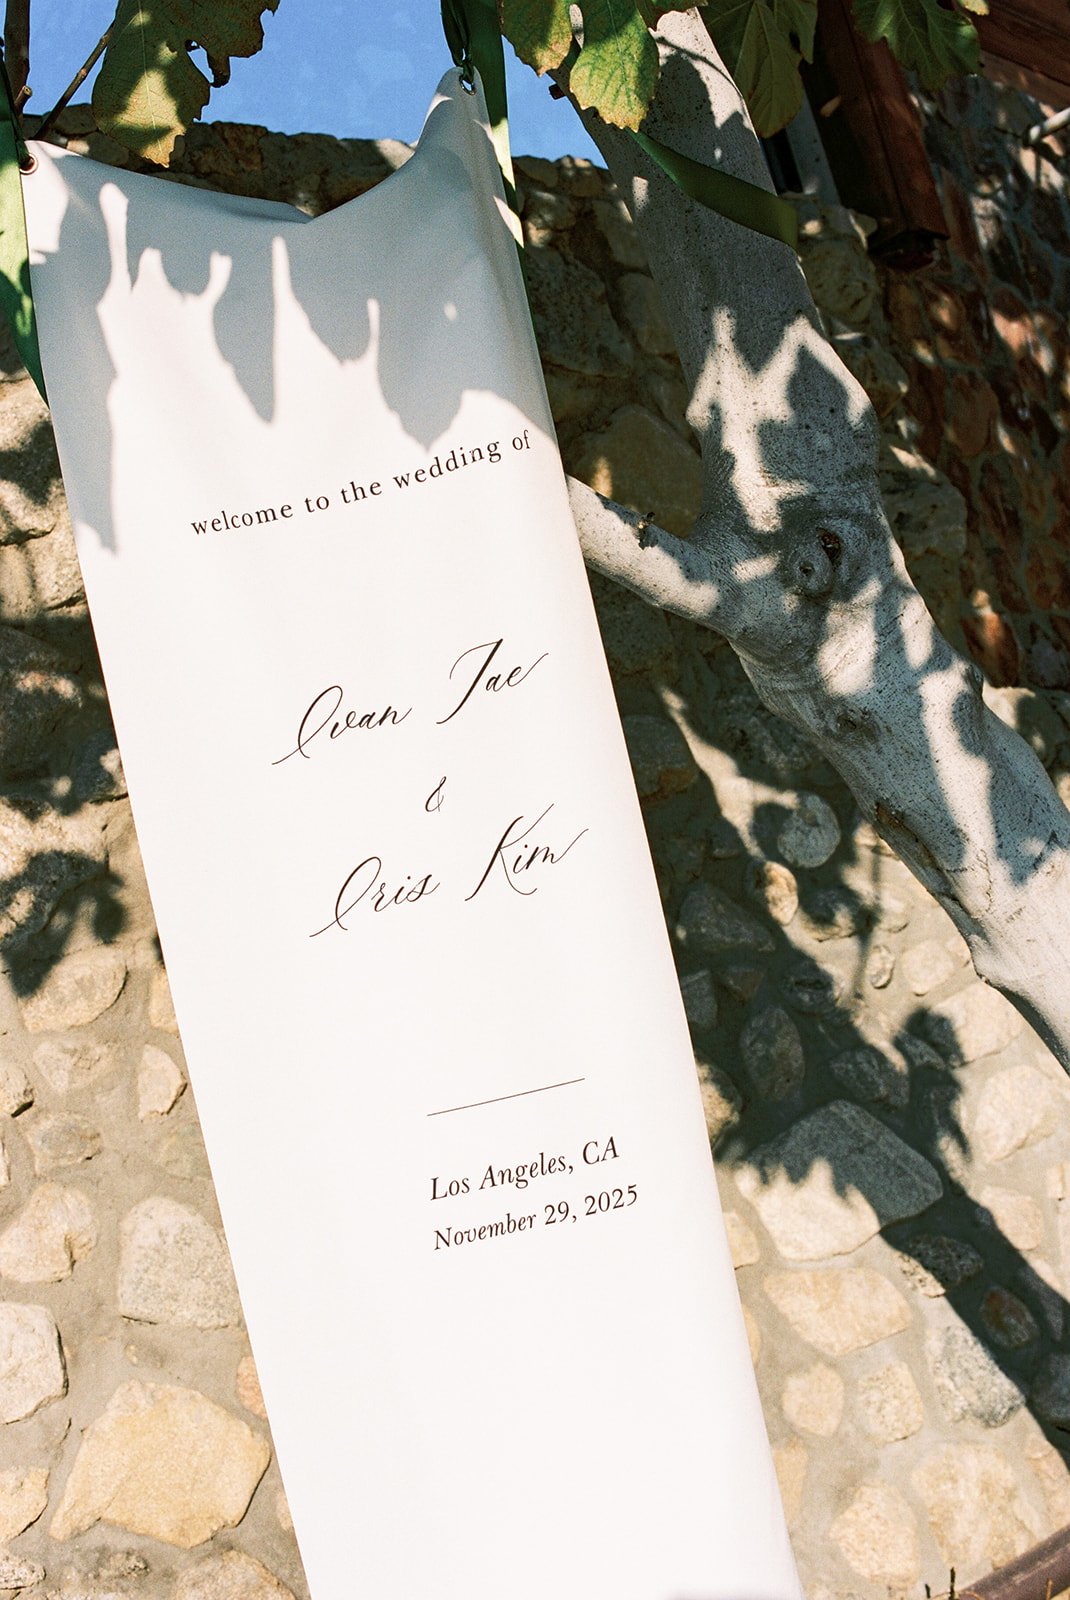 welcome to the wedding of
Ivan Jae
&
Iris Kim
Los Angeles, CA
November 29, 2025